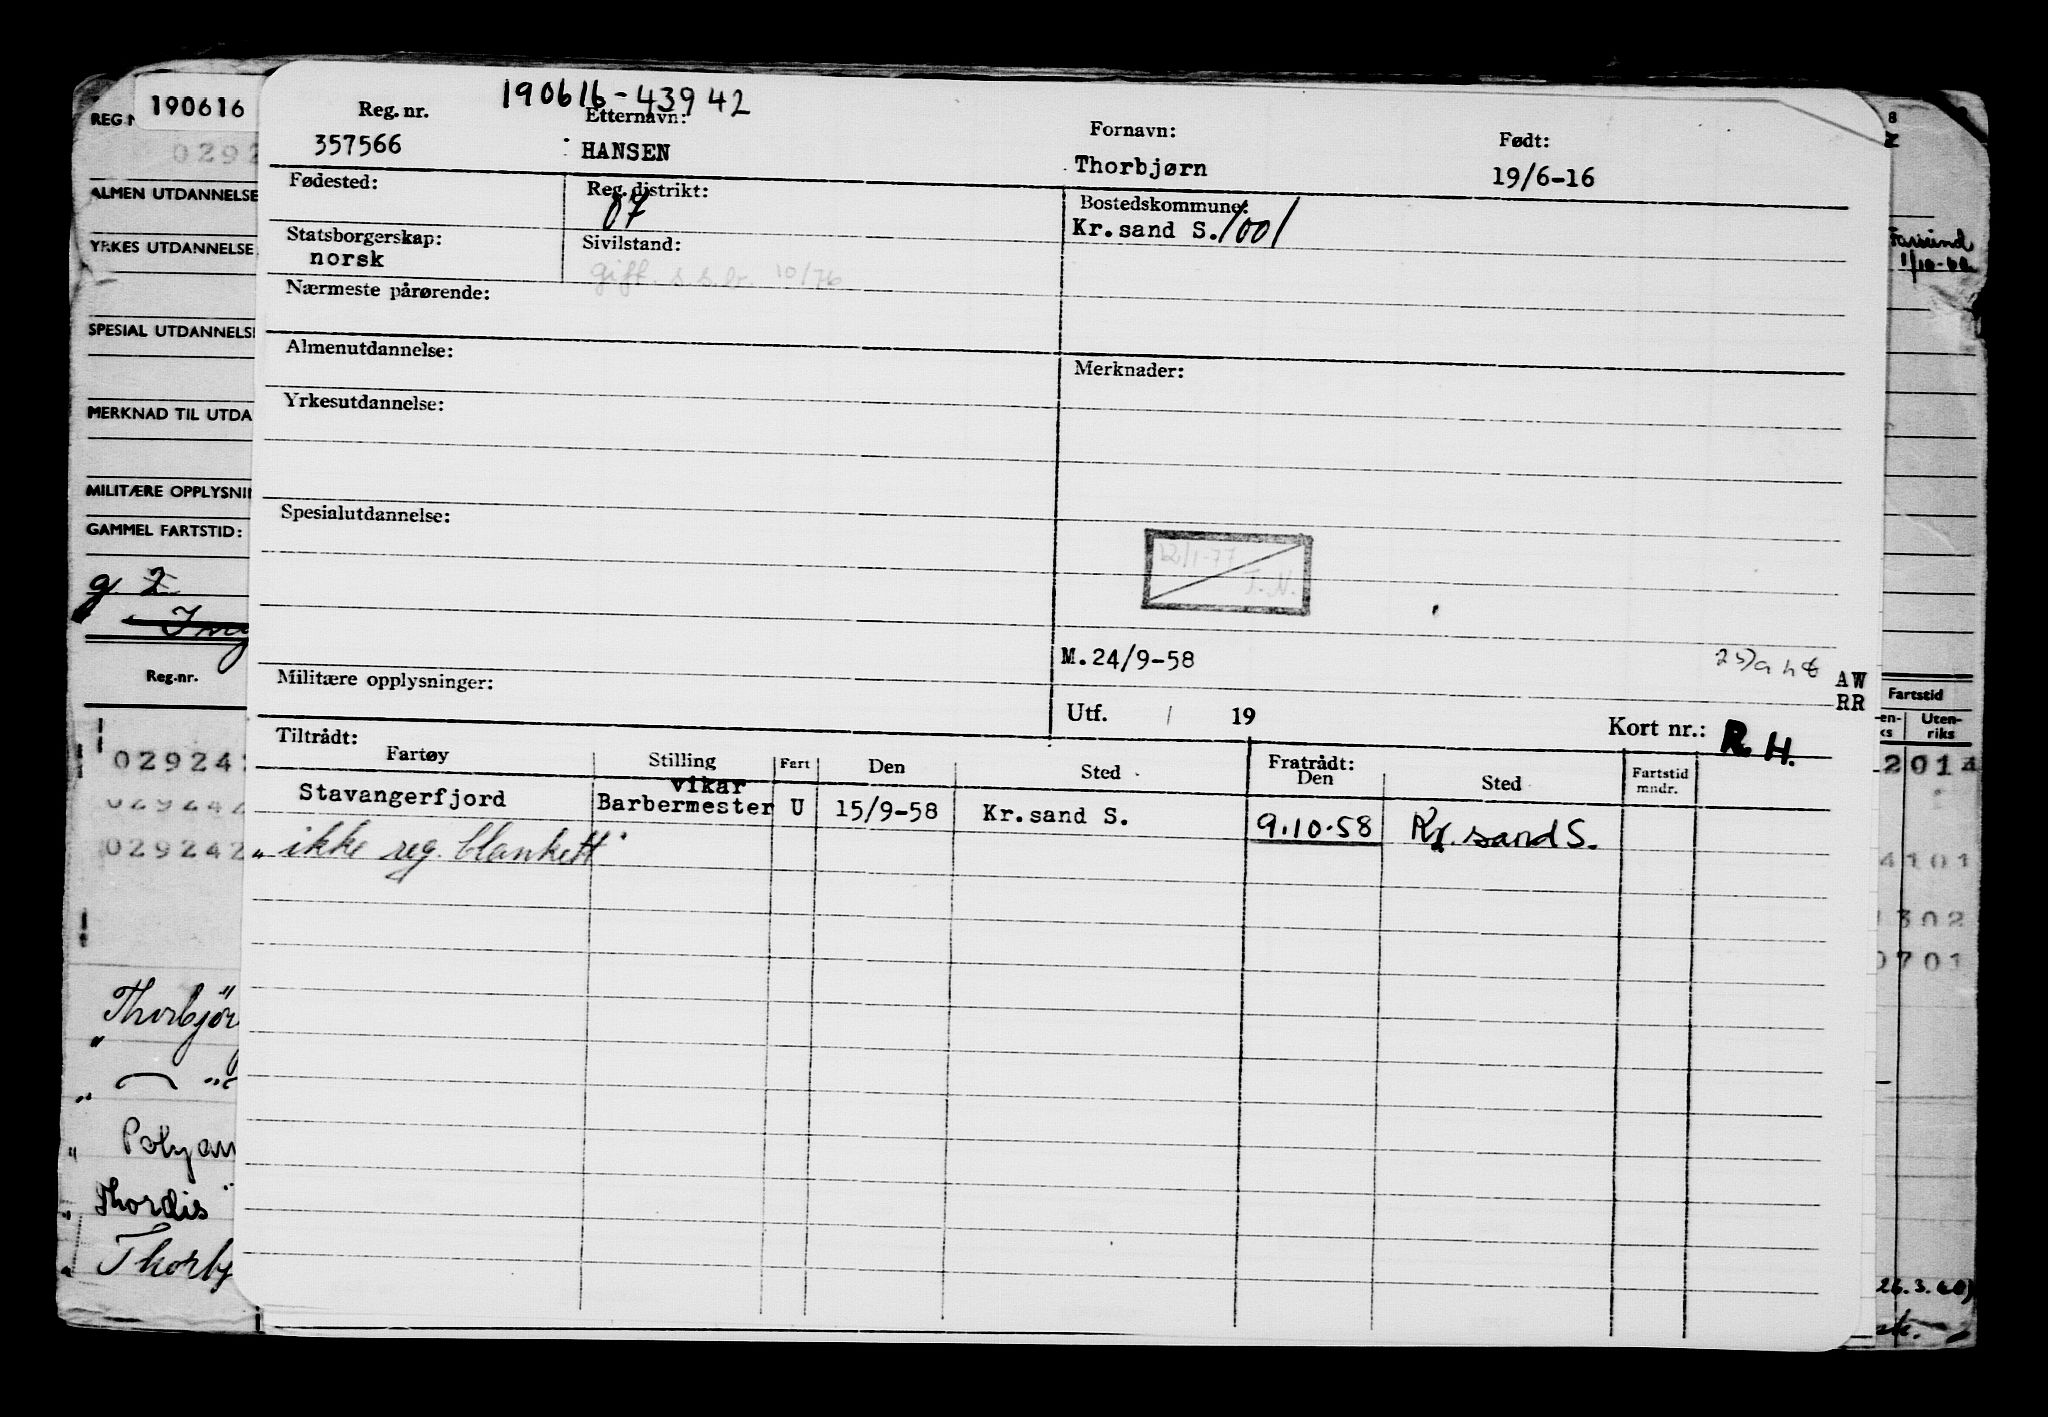 190616-43942
Reg. nr. Etternavn: Fornavn: Født:
357566 HANSEN Thorbjørn 19/6-16
Fødested: Reg. distrikt: Bostedskommune:
07 Kr.sand S. 1001
Statsborgerskap: Sivilstand:
norsk gift. s.s.br. 10/76
Nærmeste pårørende:
Almenutdannelse: Merknader:
Yrkesutdannelse:
Spesialutdannelse:
12/1-77
T.N.
M.24/9-58
Militære opplysninger: AW
RR
Utf. / 19 Kort nr.: R.H.
Tiltrådt: Fratrådt:
Fartøy Stilling Fart Den Sted Den Sted Fartstid mndr.
Stavangerfjord vikar Barbermester U 15/9-58 Kr.sand S. 9.10.58 Kr. sand S.
" ikke reg. blankett "
190616
REG N
0292
ALMEN UTDANNELSE
YRKES UTDANNELSE
SPESIAL UTDANNELSE
MERKNAD TIL UTDA
MILITÆRE OPPLYSNIN
GAMMEL FARTSTID:
Reg.nr.
029242
029242
029242
Thorbjör
Polyan
Thordis
Thorbj
8
Farsund
1/10-60
Fartstid
en-ks Uten-riks
2014
4101
1302
0701
26.3.60)